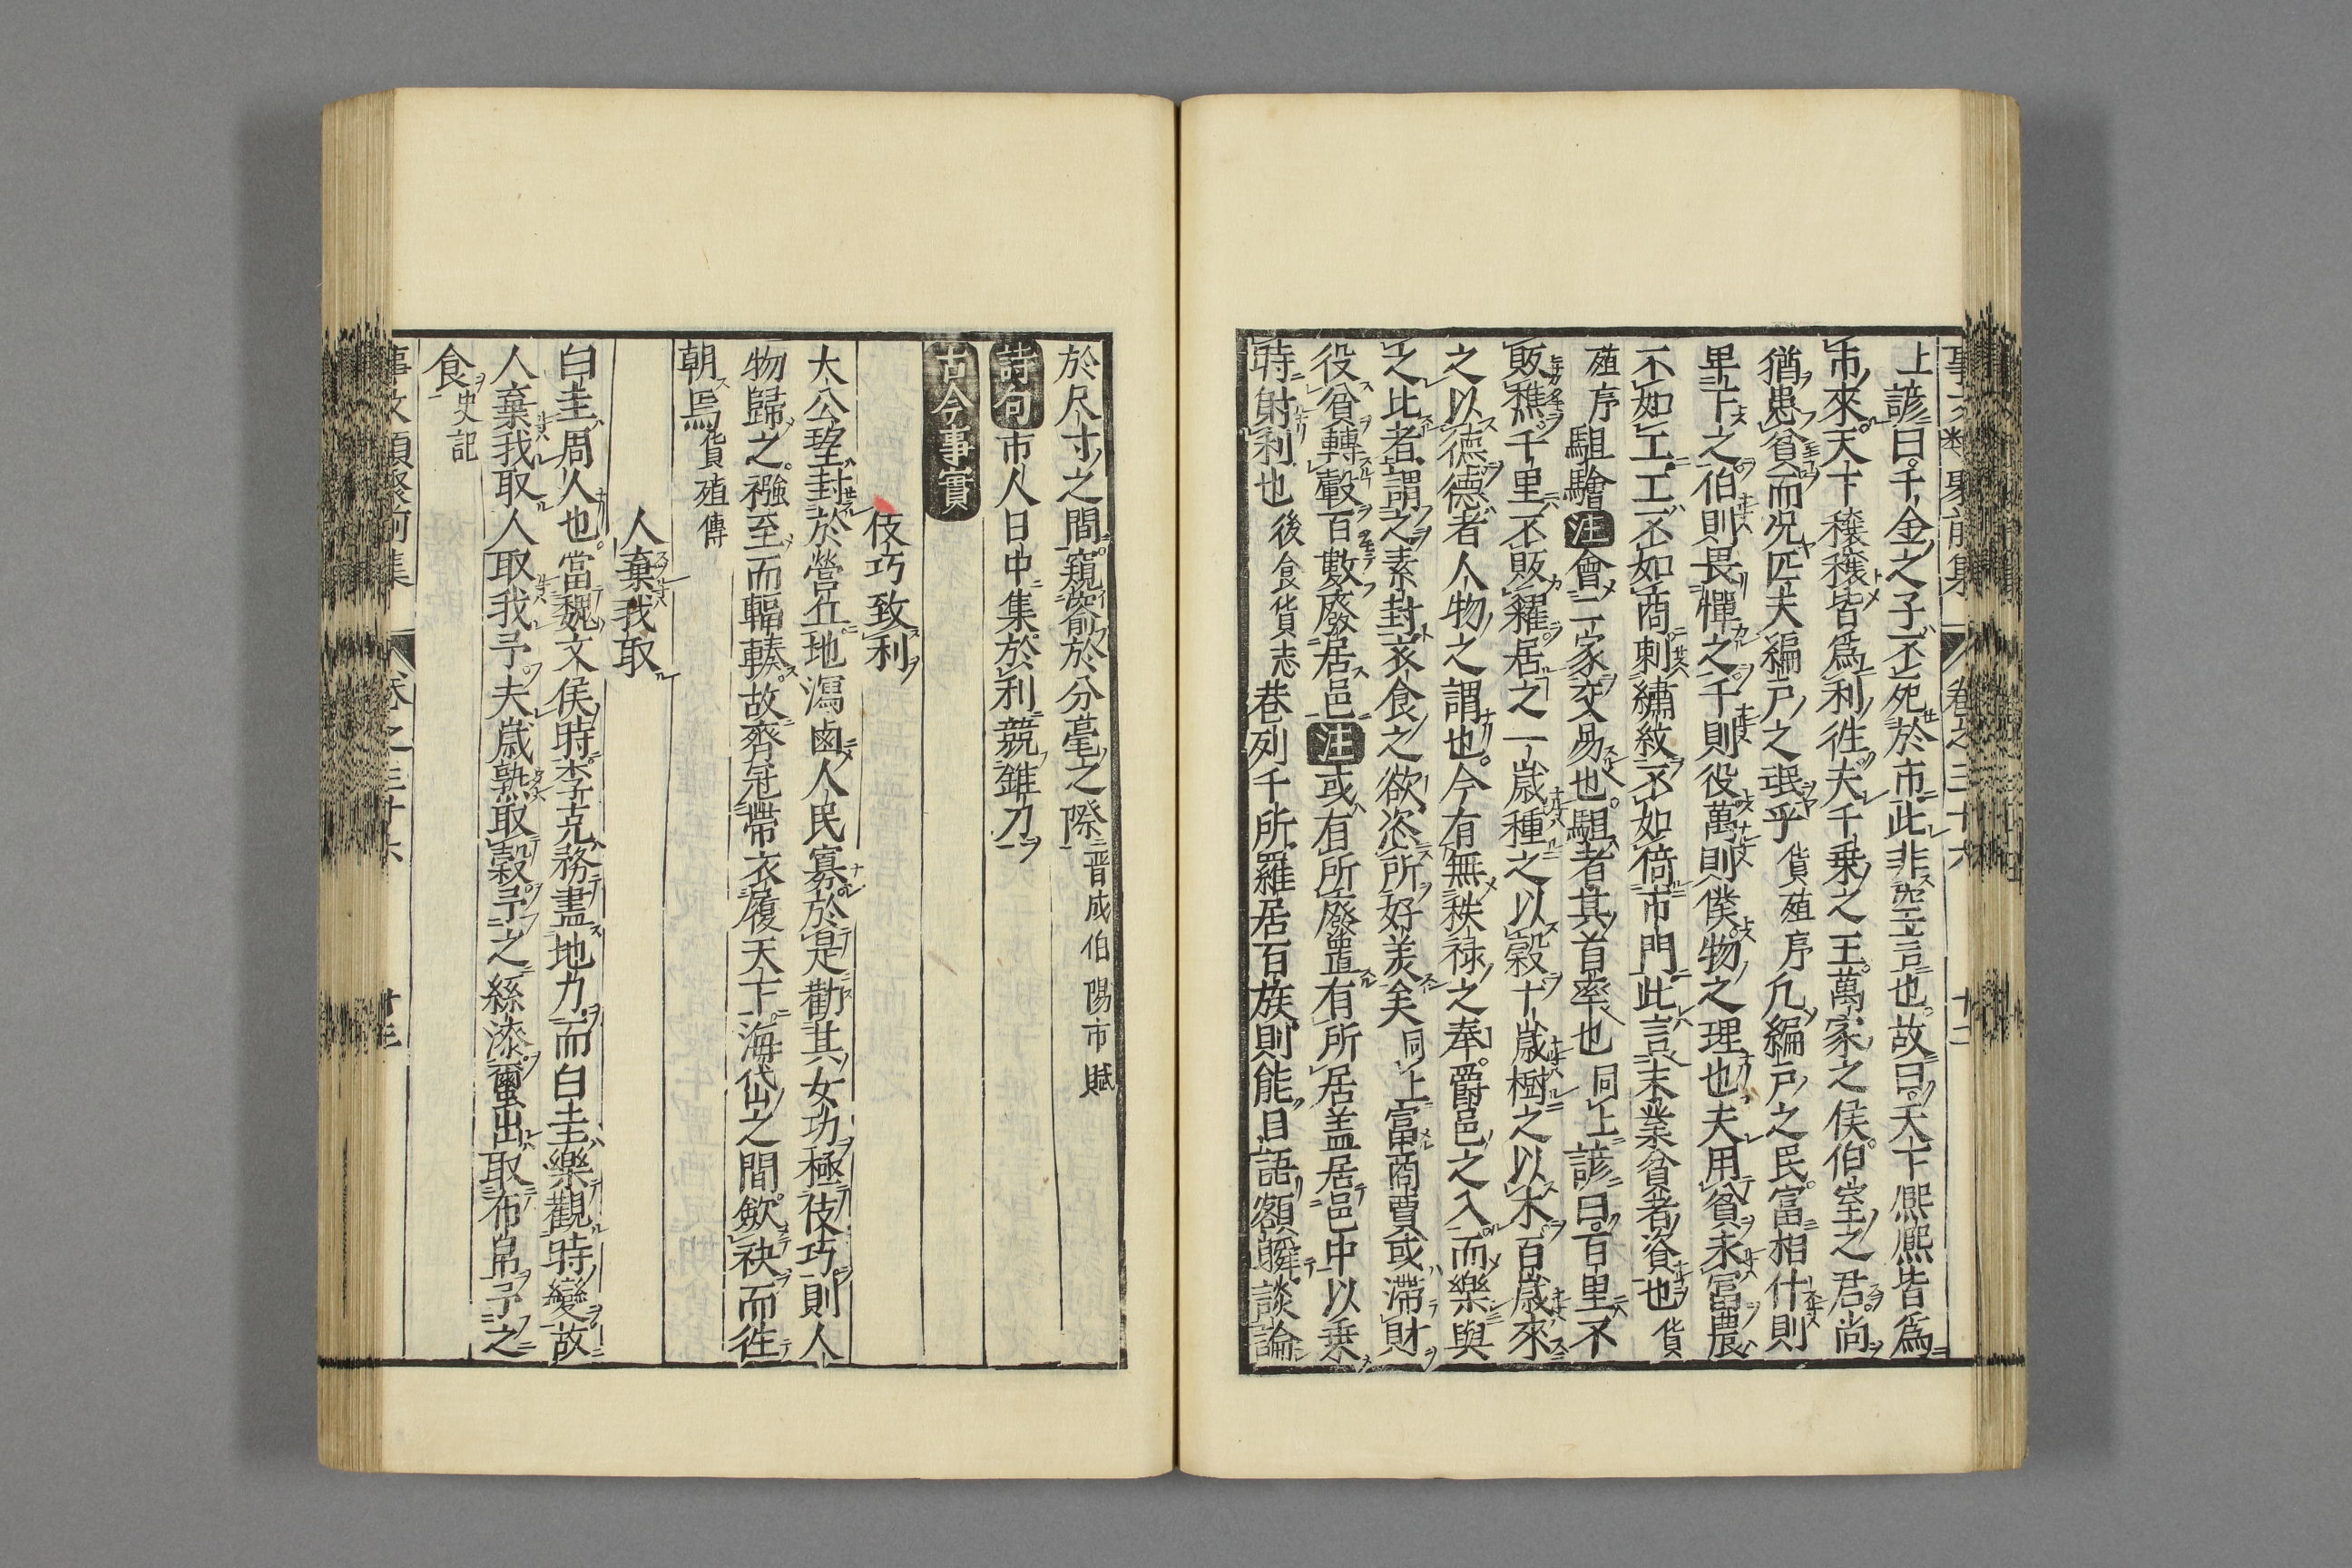 上諺曰千金之子不死於市此非空言也故曰天下熈熈皆爲
市來天下穰穰皆爲利徃夫千乗之王萬家之侯伯室之君尚
猶患貧而况匹夫編戸之珉乎貨殖序凢編戸之民富相什則
卑下之伯則畏憚之千則役萬則僕物之理也夫用貧求富農
不如工工不如商刺繡紋不如倚市門此言末業貧者資也貨
殖序駔驓注會二家交易也駔者其首率也同上諺曰百里不
販樵千里不販糴居之一歳種之以穀十歳樹之以木百歳來
之以德德者人物之謂也今有無秩禄之奉爵邑之入而樂與
之比者謂之素封衣食之欲恣所好羙矣同上冨商賈或滯財
役貧轉轂百數廢居邑注或有所廢置有所居盖居邑中以乗
時射利也後食貨志巷列千所羅居百族則能目語額瞬談論
於尺寸之間窺窬於分毫之際晋成伯陽市賦
詩句市人日中集於利競錐刀
古今事實
伎巧致利
大公望封於營丘地潟鹵人民寡於是勸其女功極伎巧則人
物歸之襁至而輻輳故齊冠帶衣履天下海岱之間歛袂而徃
朝焉貨殖傳
人棄我取
白圭周人也當魏文侯時李克務盡地力而白圭樂觀時變故
人棄我取人取我予夫歳熟取穀予之絲漆蠒出取布帛予之
食史記